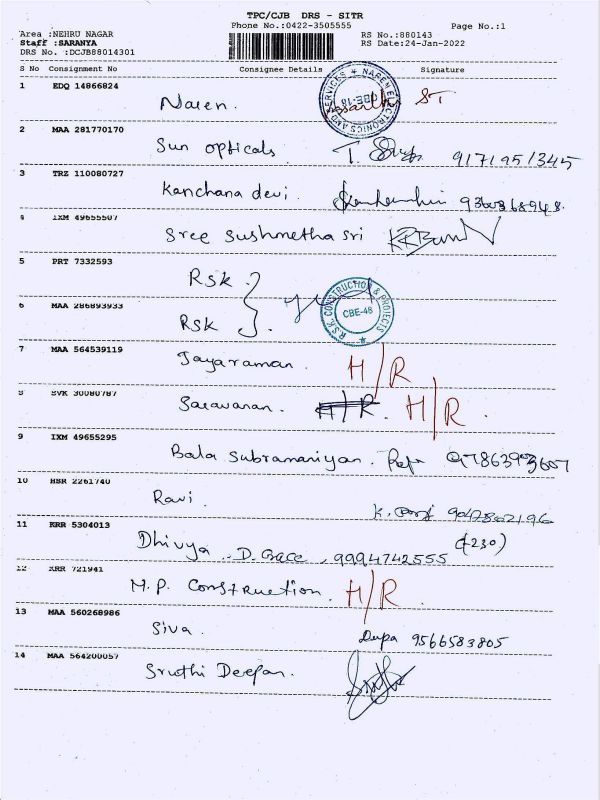 TPC/CJB DRS - SITR
Phone No.:0422-3505555
Page No.:1
Area :NEHRU NAGAR
RS No.:880143
Staff :SARANYA
RS Date:24-Jan-2022
DRS No. :DCJB88014301
S No Consignment No Consignee Details Signature
1 EDQ 14866824
Naren.
NAREN ELECTRONICS AND SERVICES
CBE-18
2 MAA 281770170
Sun opticals 9171951345
3 TRZ 110080727
Kanchana devi. 9360368948.
4 IXM 49655507
Sree Sushmetha sri
5 PRT 7332593
Rsk
R.S.K. CONSTRUCTION & PROJECTS
CBE-48
6 MAA 286893933
Rsk
7 MAA 564539119
Jayaraman. H/R
8 SVK 30080787
Saravanan. H/R. H/R.
9 IXM 49655295
Bala Subramaniyan.
10 HBR 2261740
Ravi.
11 KRR 5304013
Dhivya D. Grace, 9994742555 (230)
12 KRR 721941
M.P. Construction. H/R.
13 MAA 560268986
Siva. 9566583805
14 MAA 564200057
Sruthi Deepan.